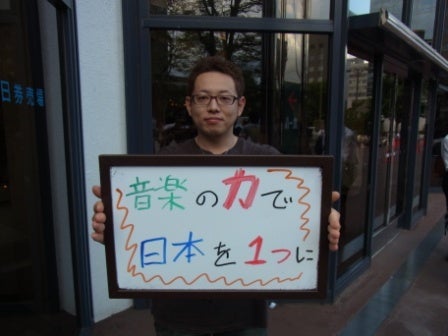 日券売場
音楽の力で
日本を1つに